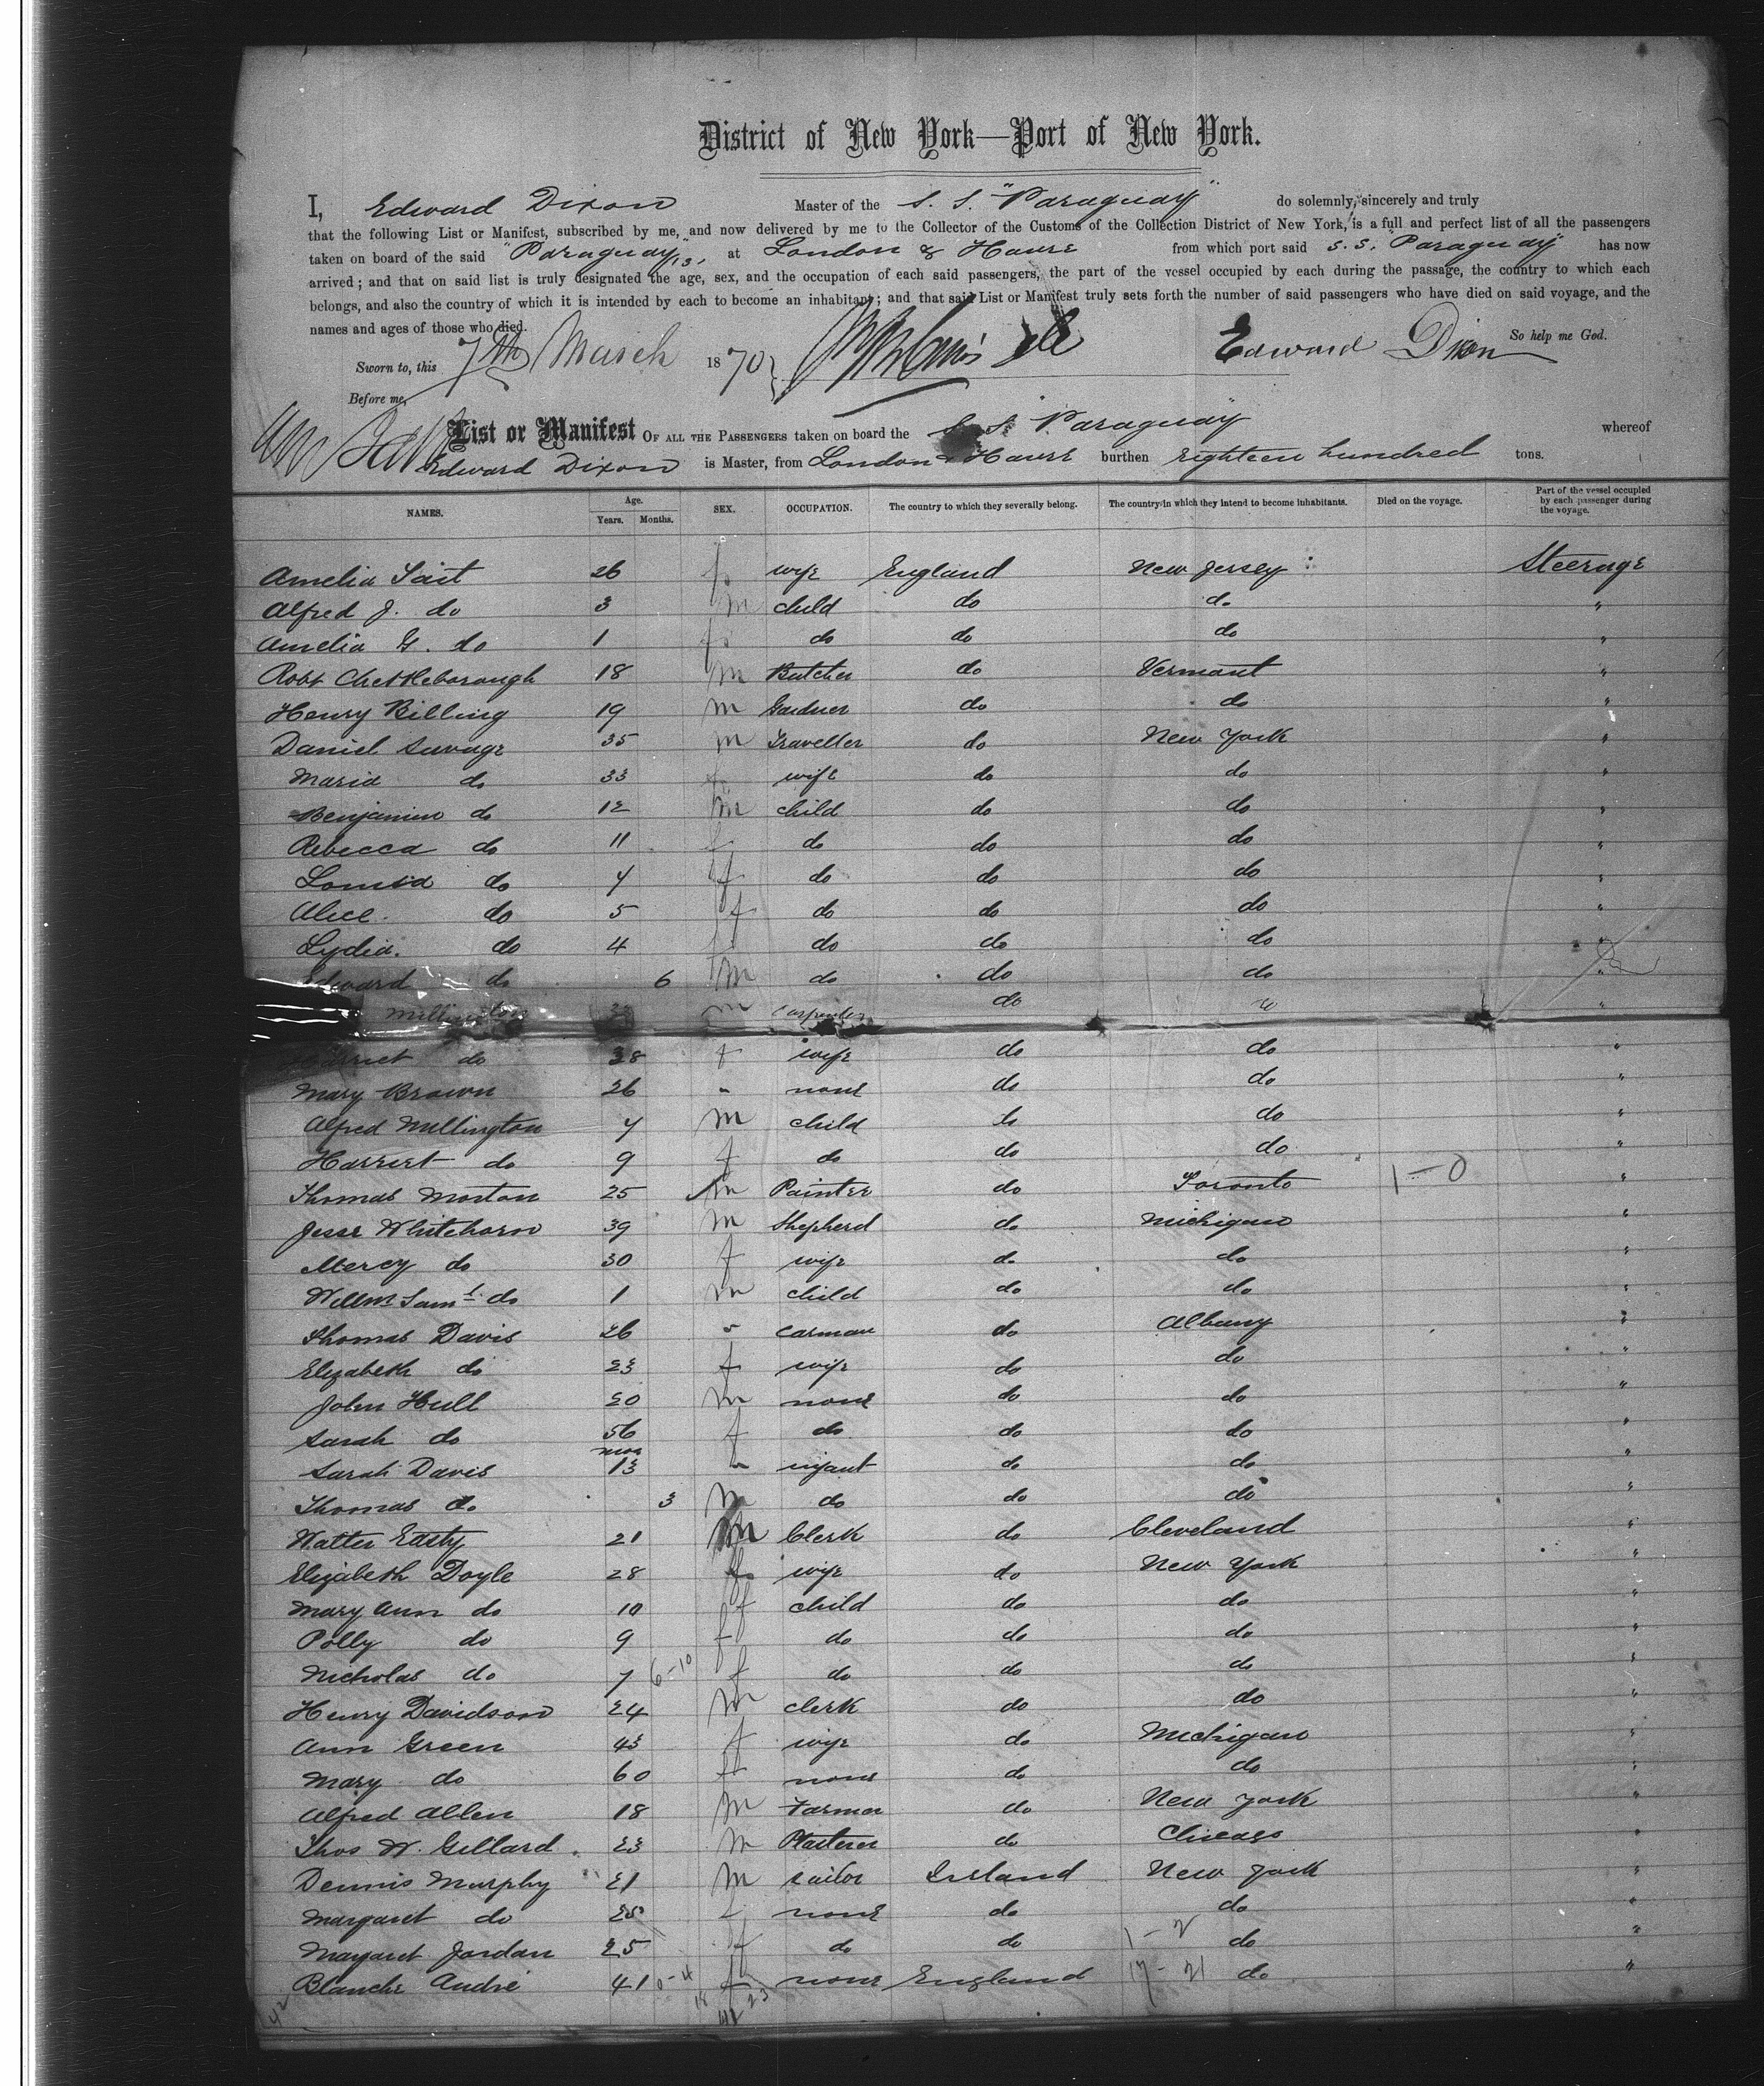 District of New York—Port of New York.
I, Edward Dixon Master of the S. S. "Paraguay" do solemnly, sincerely and truly
that the following List or Manifest, subscribed by me, and now delivered by me to the Collector of the Customs of the Collection District of New York, is a full and perfect list of all the passengers
taken on board of the said "Paraguay", at London & Havre from which port said S. S. "Paraguay" has now
arrived; and that on said list is truly designated the age, sex, and the occupation of each said passengers, the part of the vessel occupied by each during the passage, the country to which each
belongs, and also the country of which it is intended by each to become an inhabitant; and that said List or Manifest truly sets forth the number of said passengers who have died on said voyage, and the
names and ages of those who died. So help me God.
Sworn to, this 7th March 1870 Edward Dixon
Before me,
List or Manifest OF ALL THE PASSENGERS taken on board the S. S. "Paraguay" whereof
Edward Dixon is Master, from London & Havre burthen Eighteen hundred tons.
NAMES. Age. Years. Months. SEX. OCCUPATION. The country to which they severally belong. The country in which they intend to become inhabitants. Died on the voyage. Part of the vessel occupied by each passenger during the voyage.
Amelia Tait 26 f wife England New Jersey Steerage
Alfred J. do 3 m child do do "
Amelia G. do 1 f do do do "
Robt Chettleborough 18 m Butcher do Vermont "
Henry Billing 19 m Gardner do do "
Daniel Savage 35 m Traveller do New York "
Maria do 33 f wife do do "
Benjamin do 12 m child do do "
Rebecca do 11 f do do do "
Louisa do 7 f do do do "
Alice do 5 f do do do "
Lydia do 4 f do do do "
Edward do 6 m do do do "
Millington m Carpenter do do "
Harriet do 38 f wife do do "
Mary Brown 26 " none do do "
Alfred Millington 7 m child do do "
Harriet do 9 f do do do "
Thomas Morton 25 m Painter do Toronto 1-0 "
Jesse Whitehorn 39 m Shepherd do Michigan "
Mercy do 30 f wife do do "
Willm Saml do 1 m child do do "
Thomas Davis 26 " Carman do Albany "
Elizabeth do 23 f wife do do "
John Hull 20 m none do do "
Sarah do 56 f do do do "
Sarah Davis mos 13 " infant do do "
Thomas do 3 m do do do "
Walter Easty 21 m Clerk do Cleveland "
Elizabeth Doyle 28 f wife do New York "
Mary Ann do 10 f child do do "
Polly do 9 f do do do "
Nicholas do 7 6-10 f do do do "
Henry Davidson 24 m clerk do do "
Ann Green 43 f wife do Michigan "
Mary do 60 f none do do "
Alfred Allen 18 m Farmer do New York "
Thos W. Gillard 23 m Plasterer do Chicago "
Dennis Murphy 21 m sailor Ireland New York "
Margaret do 25 f none do do "
Margaret Jordan 25 f do do 1-2 do "
Blanche André 41 0-4 f none England 17-21 do "
42 18 23